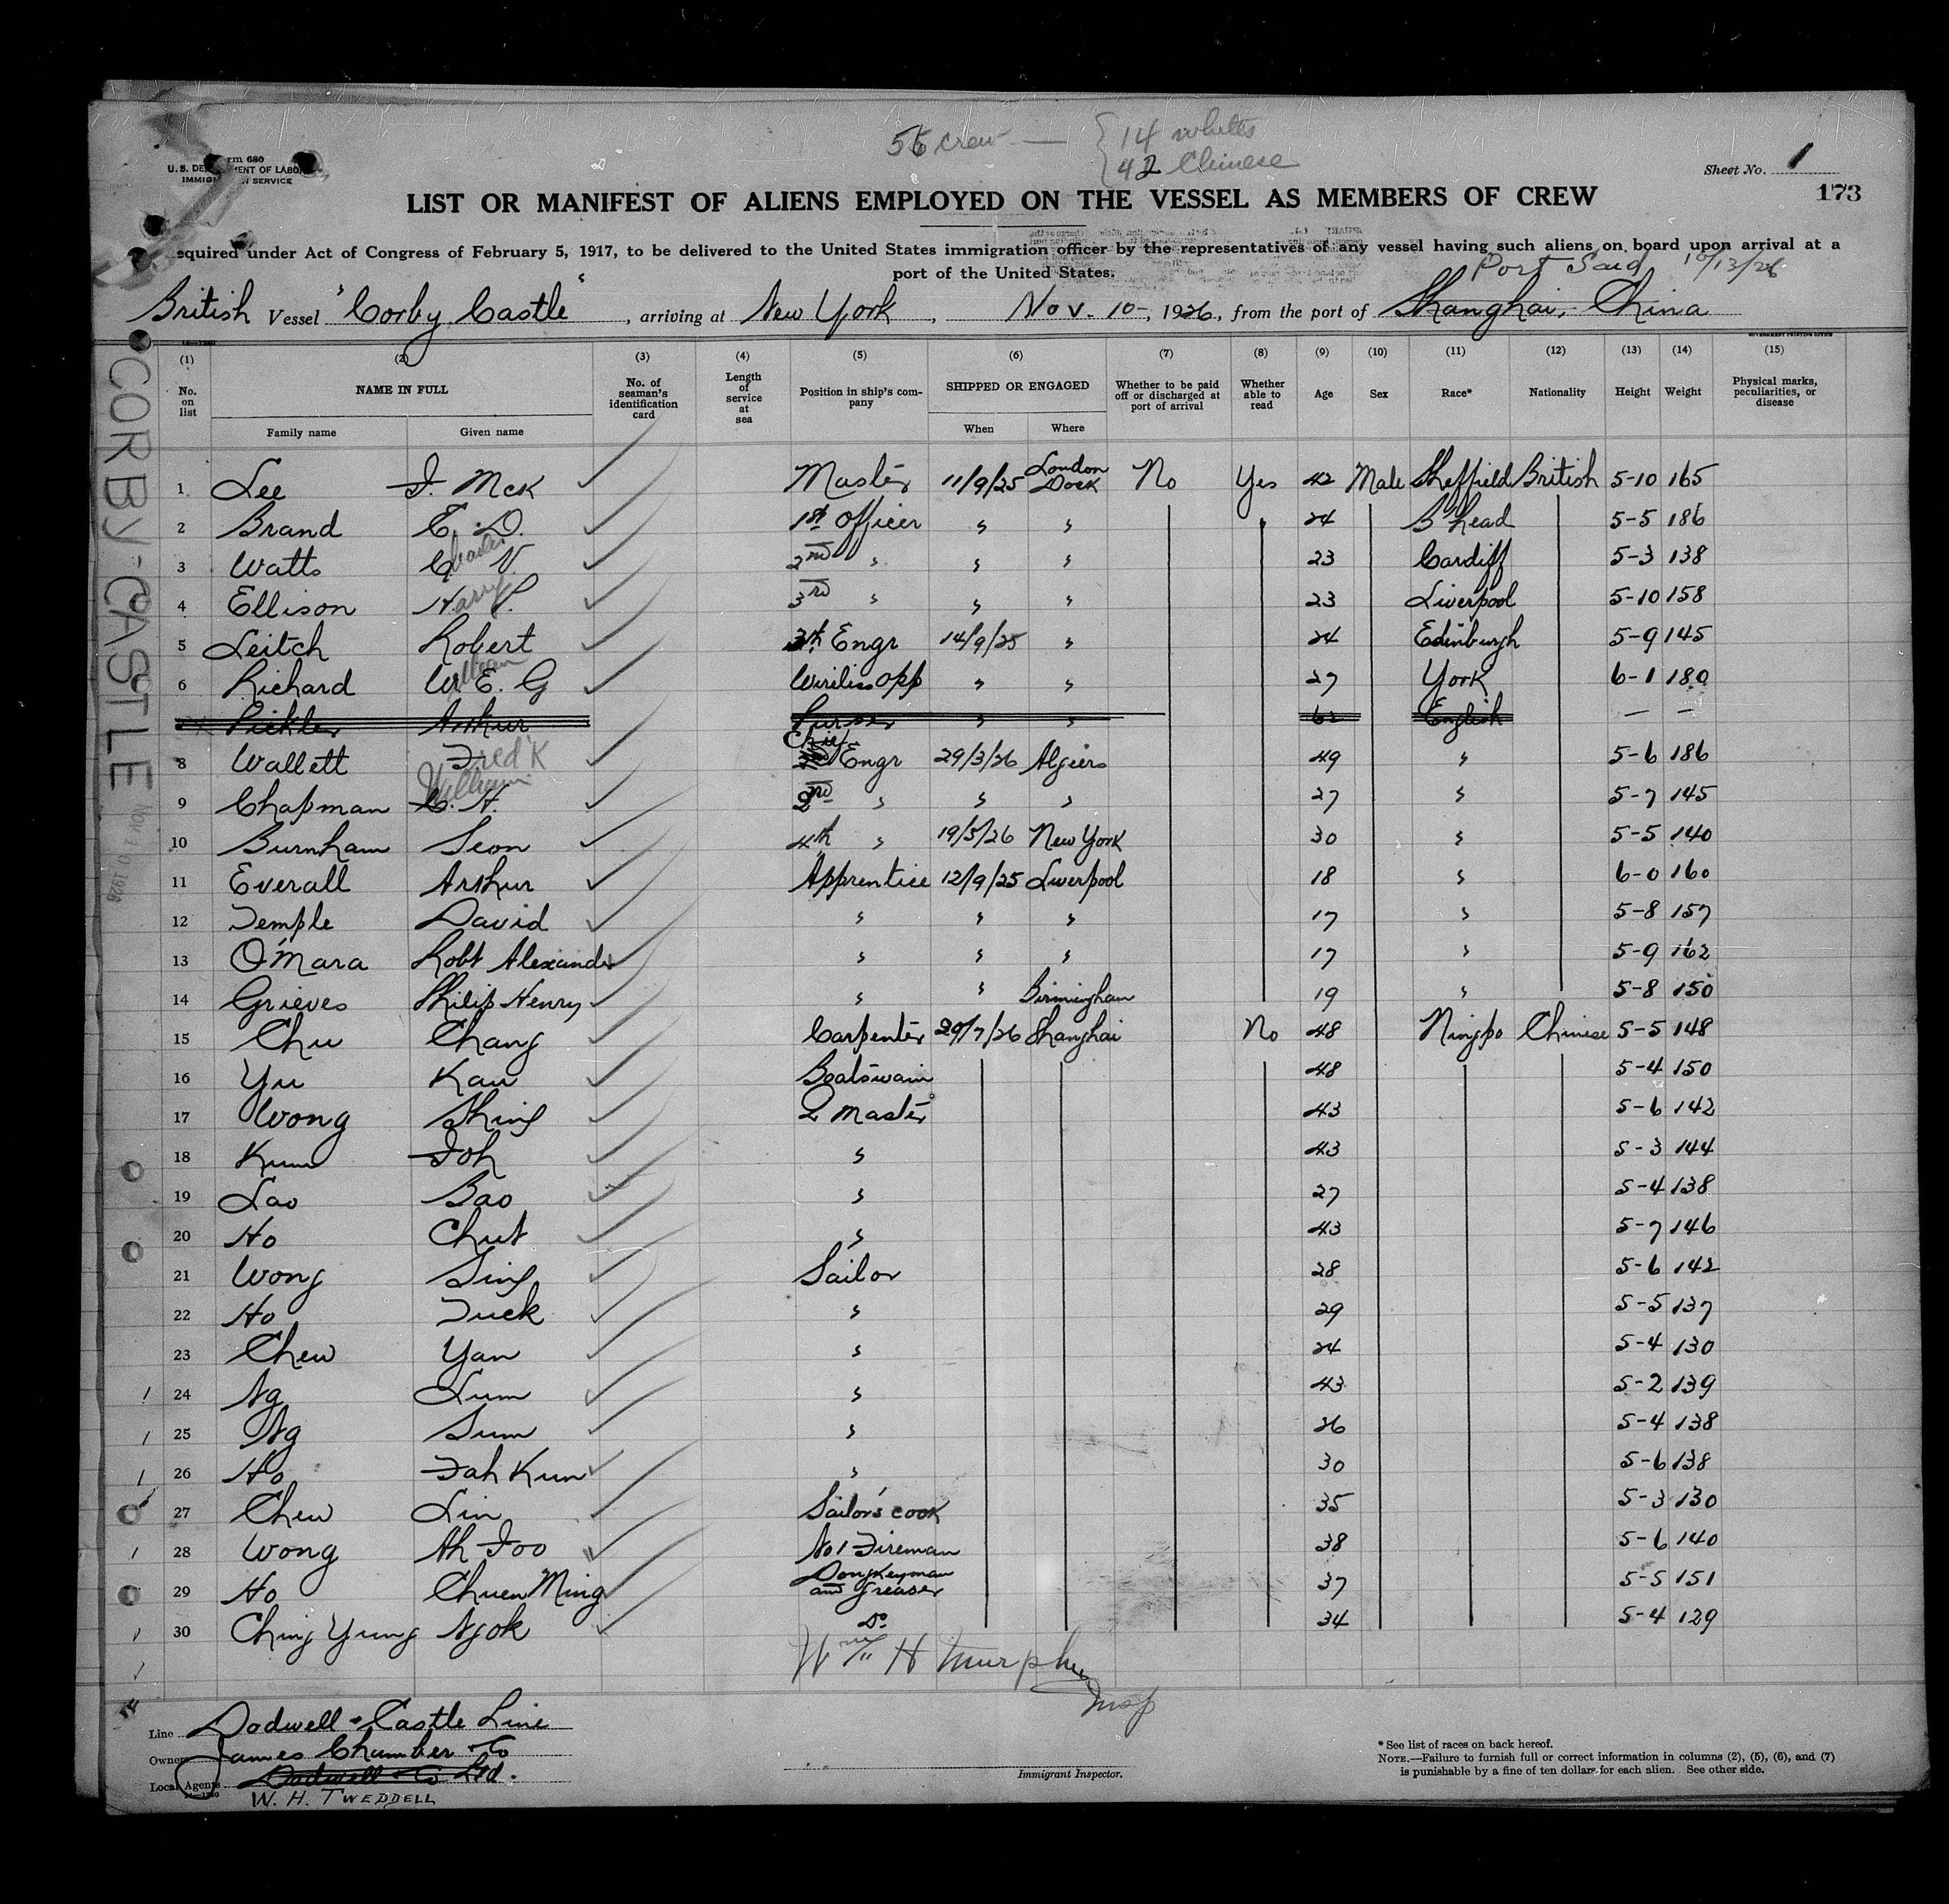 56 crew — { 14 whites
42 Chinese
U. S. DEPARTMENT OF LABOR
IMMIGRATION SERVICE
Sheet No. 1
173
LIST OR MANIFEST OF ALIENS EMPLOYED ON THE VESSEL AS MEMBERS OF CREW
equired under Act of Congress of February 5, 1917, to be delivered to the United States immigration officer by the representatives of any vessel having such aliens on board upon arrival at a
port of the United States.
Port Said 10/13/26
British Vessel "Corby Castle", arriving at New York, Nov. 10-, 1926, from the port of Shanghai, China
CORBY-CASTLE
NOV 10 1926
(1) (2) (3) (4) (5) (6) (7) (8) (9) (10) (11) (12) (13) (14) (15)
No. on list NAME IN FULL No. of seaman's identification card Length of service at sea Position in ship's company SHIPPED OR ENGAGED Whether to be paid off or discharged at port of arrival Whether able to read Age Sex Race* Nationality Height Weight Physical marks, peculiarities, or disease
Family name Given name When Where
1 Lee J. McK Master 11/9/25 London Dock No Yes 42 Male Sheffield British 5-10 165
2 Brand E. D. 1st Officer " " 24 B'head 5-5 186
3 Watts C Charles V. 2nd " " " 23 Cardiff 5-3 138
4 Ellison Harry P. 3rd " " " 23 Liverpool 5-10 158
5 Leitch Robert 3th Engr 14/9/25 " 24 Edinburgh 5-9 145
6 Richard William E. G Wireless opp " " 27 York 6-1 180
Pickles Arthur Purser " " 62 English — —
8 Wallett Fred'K Chief Engr 29/3/26 Algiers 49 " 5-6 186
9 Chapman William C. H. 2nd " " " 27 " 5-7 145
10 Burnham Leon 4th " 19/5/26 New York 30 " 5-5 140
11 Everall Arthur Apprentice 12/9/25 Liverpool 18 " 6-0 160
12 Temple David " " " 17 " 5-8 157
13 O'Mara Robt Alexander " " " 17 " 5-9 162
14 Grieves Philip Henry " " Birmingham 19 " 5-8 150
15 Chu Chang Carpenter 29/7/26 Shanghai No 48 Ningpo Chinese 5-5 148
16 Yu Kau Boatswain 48 5-4 150
17 Wong Shing Q Master 43 5-6 142
18 Kum Foh " 43 5-3 144
19 Lao Bao " 27 5-4 138
20 Ho Chut " 43 5-7 146
21 Wong Sing Sailor 28 5-6 142
22 Ho Tuck " 29 5-5 137
23 Chew Yan " 24 5-4 130
24 Ng Lum " 43 5-2 139
25 Ng Sum " 26 5-4 138
26 Ho Fah Kun " 30 5-6 138
27 Chew Lin Sailor's cook 35 5-3 130
28 Wong Ah Foo No 1 Fireman 38 5-6 140
29 Ho Chuen Ming Donkeyman and Greaser 37 5-5 151
30 Ching Yung Ngok Do 34 5-4 129
Wm H Murphy
Insp
Line Dodwell-Castle Line
Owners James Chamber & Co
Local Agents Dodwell & Co Ltd.
W. H. TWEDDELL
Immigrant Inspector.
* See list of races on back hereof.
NOTE.—Failure to furnish full or correct information in columns (2), (5), (6), and (7)
is punishable by a fine of ten dollars for each alien. See other side.